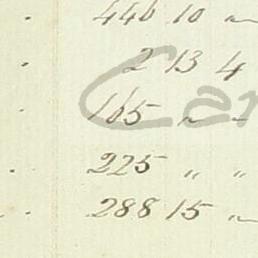 446 10 "
2 13 4
165 " "
225 " "
288 15 "